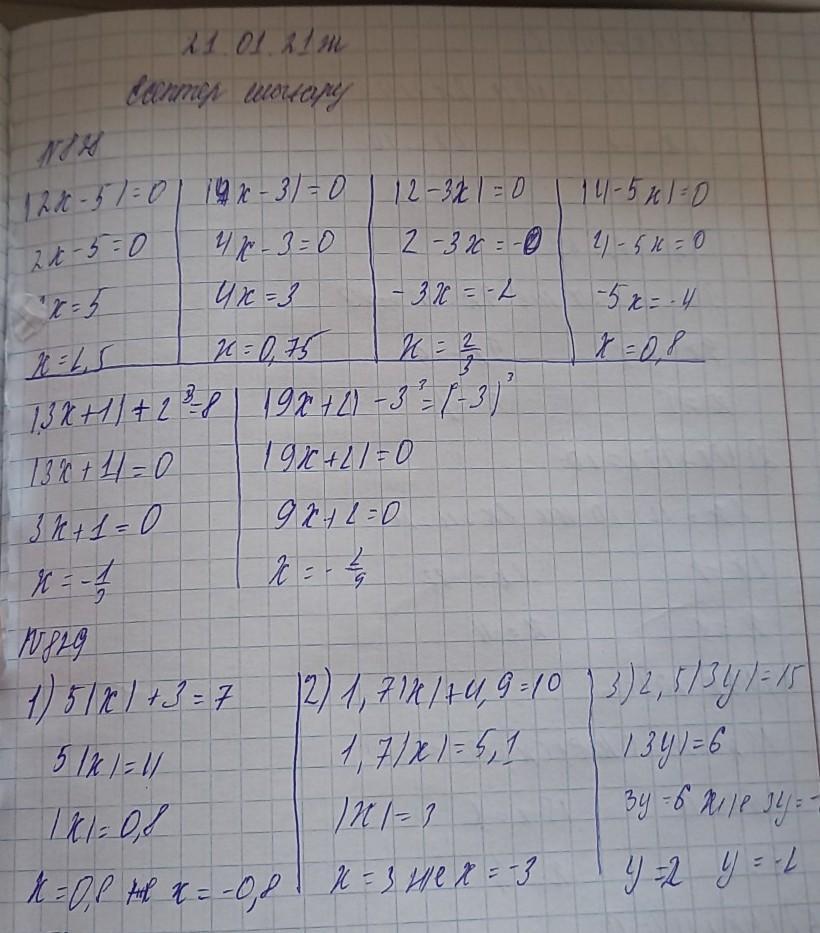 21.01.21ж
Есептер шығару
№828
|2x-5|=0 |4x-3|=0 |2-3x|=0 |4-5x|=0
2x-5=0 4x-3=0 2-3x=-0 4-5x=0
x=5 4x=3 -3x=-2 -5x=-4
x=2,5 x=0,75 x=2/3 x=0,8
|3x+1|+2³=8 |9x+2|-3³=(-3)³
|3x+1|=0 |9x+2|=0
3x+1=0 9x+2=0
x=-1/3 x=-2/9
№829
1) 5|x|+3=7 2) 1,7|x|+4,9=10 3) 2,5|3y|=15
5|x|=4 1,7|x|=5,1 |3y|=6
|x|=0,8 |x|=3 3y=6 же 3y=-
x=0,8 же x=-0,8 x=3 же x=-3 y=2 y=-2